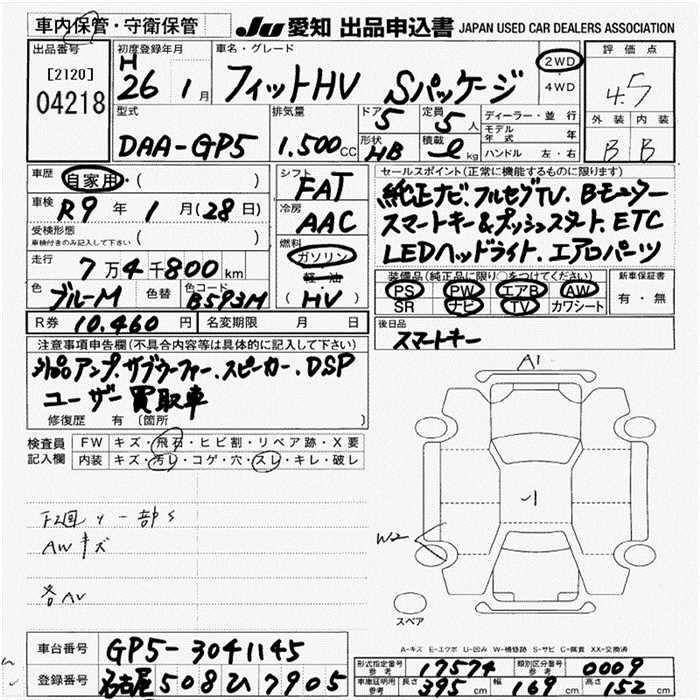 車内保管・守衛保管
JU 愛知 出品申込書 JAPAN USED CAR DEALERS ASSOCIATION
出品番号
[2120]
04218
初度登録年月
H
26 1月
車名・グレード
フィットHV Sパッケージ
2WD
4WD
評価点
4.5
外装 内装
B B
型式
DAA-GP5
排気量
1.500CC
ドア
5
定員
5人
形状
HB
積載
kg
ディーラー・並行
モデル年式 年
ハンドル 左・右
車歴 自家用・( )
車検 R9年 1月(28日)
受検形態
車検付きのみ記入して下さい ( )
走行 7万4千800km
色 ブルーM 色替 色コード B593M
R券 10.460円 名変期限 月 日
シフト
FAT
冷房
AAC
燃料
ガソリン
軽・油
(HV)
セールスポイント(正常に機能するものに限ります)
純正ナビ.フルセグTV.Bモニター
スマートキー&プッシュスタート.ETC
LEDヘッドライト.エアロパーツ
装備品(純正品に限り○をつけてください)
PS PW エアB AW
SR ナビ TV カワシート
新車保証書
有・無
後日品
スマートキー
注意事項申告欄(不具合内容等は具体的に記入して下さい)
社外品アンプ.サブウーファー.スピーカー.DSP
ユーザー買取車
修復歴 有(箇所 )
検査員記入欄
FW キズ・飛石・ヒビ割・リペア跡・X要
内装 キズ・汚レ・コゲ・穴・スレ・キレ・破レ
AWキズ
A1
W2
スペア
A-キズ E-エクボ U-凹み W-補修跡 S-サビ C-腐食 XX-交換済
車台番号 GP5-3041145
登録番号 名古屋 508 ひ 7905
形式指定番号 参考 17574 類別区分番号 参考 0009
車庫証明用 参考 長さ 395cm 幅 169cm 高さ 152cm